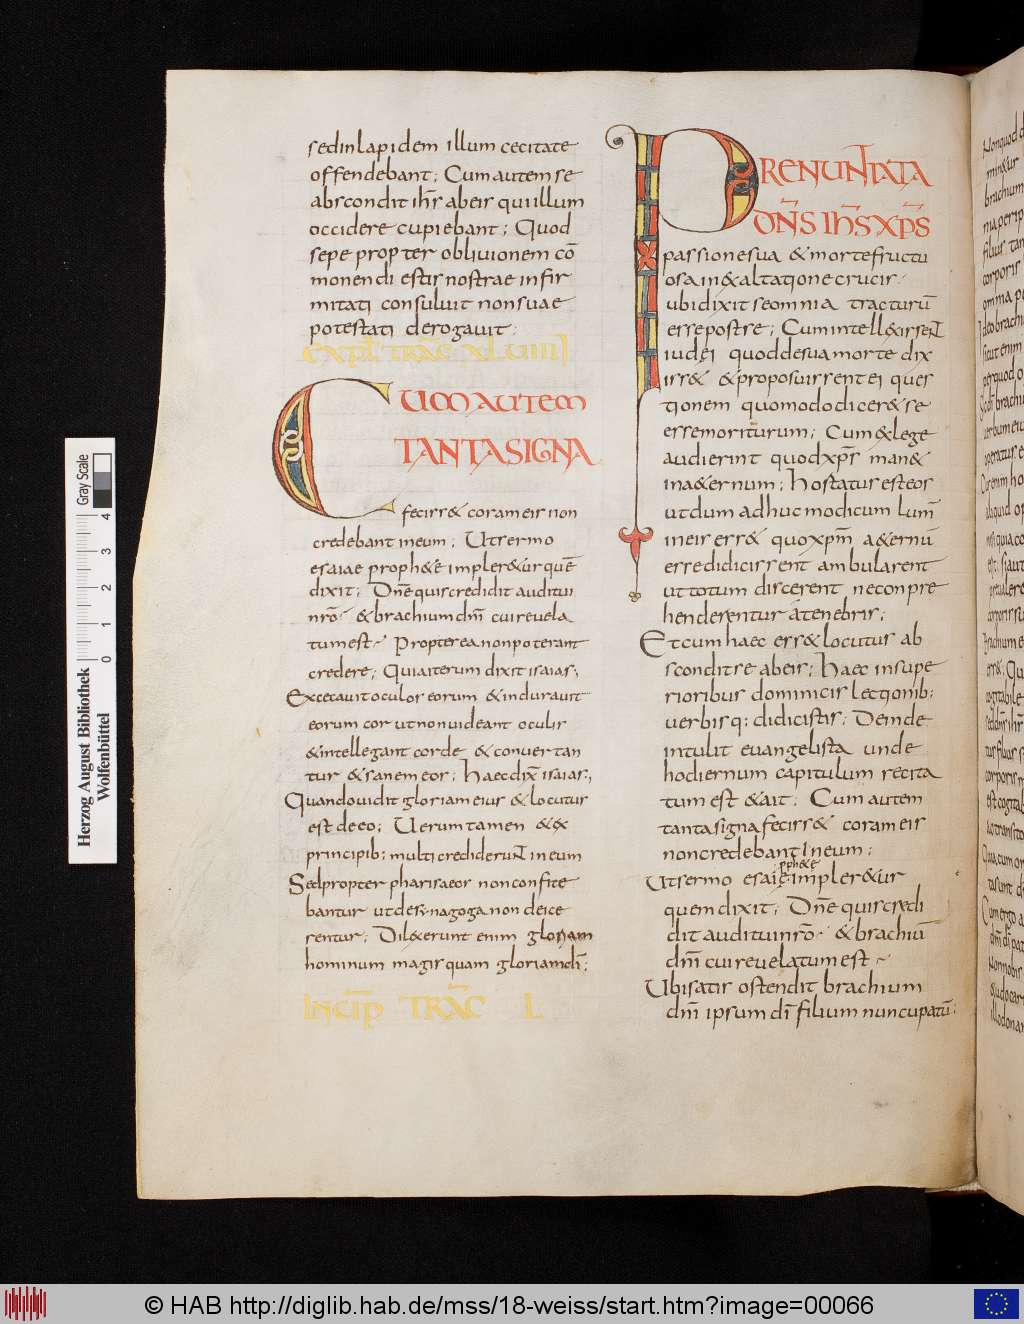 sedinlapidem illum cecitate
offendebant; Cum autem se
abscondit ihs abeis qui illum
occidere cupiebant; Quod
sepe propter oblivionem cō
monendi estis nostrae infir
mitati consuluit non suae
potestati derogavit.
EXPL TRAC XLVIIII
CUM AUTEM
TANTA SIGNA
fecisset coram eis non
credebant in eum; Ut sermo
esaiae prophetae impleretur quē
dixit; Dne quis credidit auditui
nrō et brachium dnī cui revela
tum est. Propterea non poterant
credere; Quia iterum dixit isaias;
Excecavit oculos eorum et induravit
eorum cor ut non videant oculis
et intellegant corde et convertan
tur et sanem eos; Haec dix isaias;
Quando vidit gloriam eius et locutus
est de eo; Verum tamen et ex
principib; multi crediderunt in eum
Sed propter pharisaeos non confite
bantur ut de synagoga non eice
rentur; Dilexerunt enim gloriam
hominum magis quam gloriam dī;
INCIP TRAC L
PRENUNTIATA
DN̄S IHS XPS
passione sua et morte fructu
osa in exaltatione crucis
ubi dixit se omnia tracturū
esse post se; Cum intellexissent
iudei quod de sua morte dix
isset et proposuissent ei ques
tionem quomodo diceret se
esse moriturum; Cum e lege
audierint quod xps manet
in aeternum; hortatus est eos
ut dum adhuc modicum lum̄
in eis esset quo xpm̄ aeternū
esse didicissent ambularent
ut totum discerent ne conpre
henderentur a tenebris;
Et cum haec esset locutus ab
scondit se ab eis; Haec in supe
rioribus dominicis lectionib;
verbisq; didicistis; Deinde
intulit euangelista unde
hodiernum capitulum recita
tum est et ait; Cum autem
tanta signa fecisset coram eis
non credebant in eum;
pphetae
Ut sermo esaie impleretur
quem dixit; Dne quis credi
dit auditui nrō et brachiū
dnī cui revelatum est
Ubi satis ostendit brachium
dnī ipsum dī filium nuncupatū;
Herzog August Bibliothek
Wolfenbüttel
0 1 2 3 4
Gray Scale
© HAB http://diglib.hab.de/mss/18-weiss/start.htm?image=00066